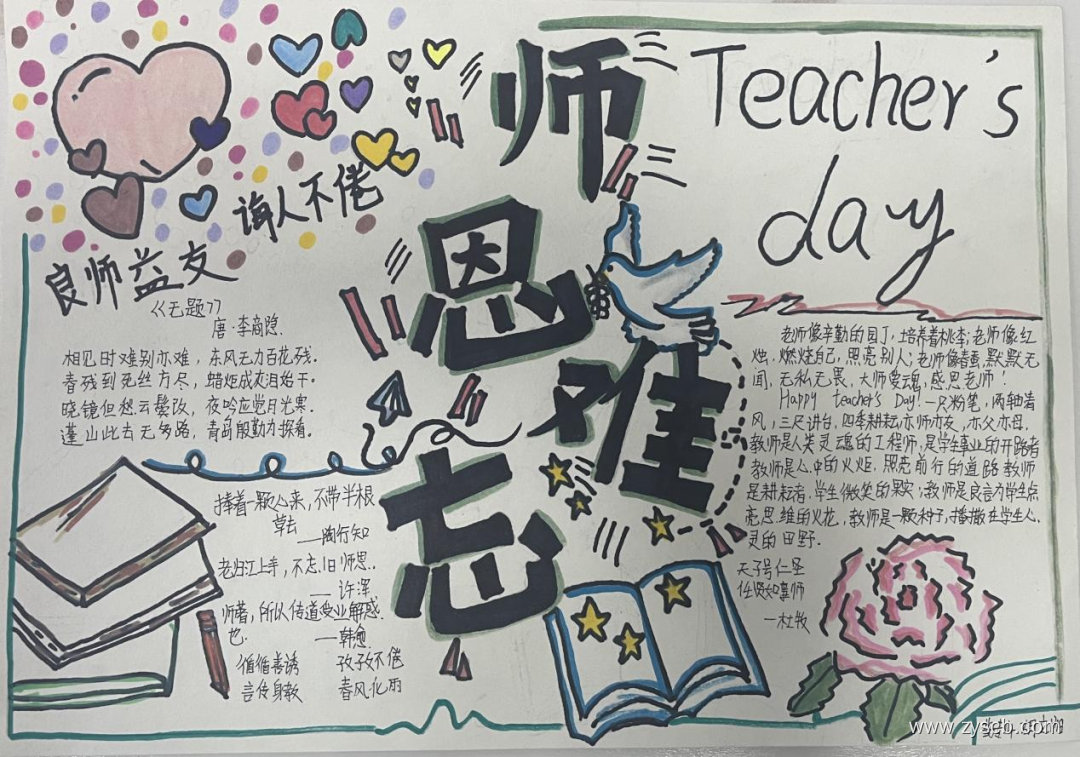 师恩难忘
Teacher's
day
诲人不倦
良师益友
《无题》
唐·李商隐.
相见时难别亦难，东风无力百花残.
春残到死丝方尽，蜡炬成灰泪始干.
晓镜但愁云鬓改，夜吟应觉月光寒.
蓬山此去无多路，青鸟殷勤为探看.
捧着一颗心来，不带半根
草去
——陶行知
老归江上寺，不忘旧师恩.
——许浑
师著，所以传道受业解惑
也.
——韩愈
循循善诱 孜孜不倦
言传身教 春风化雨
老师像辛勤的园丁，培养着桃李；老师像红
烛，燃烧自己，照亮别人；老师像春蚕，默默无
闻，无私无畏，大师爱魂，感恩老师！
Happy teacher's Day!一尺粉笔，两轴清
风，三尺讲台，四季耕耘亦师亦友，亦父亦母.
教师是人类灵魂的工程师，是学生事业的开路者
教师是心中的火炬，照亮前行的道路教师
是耕耘者，学生微笑的果实；教师是良言为学生点
亮思维的火花，教师是一颗种子，播撒在学生心
灵的田野.
天子号仁圣
任贤如事师
—杜牧
www.zysgb.com